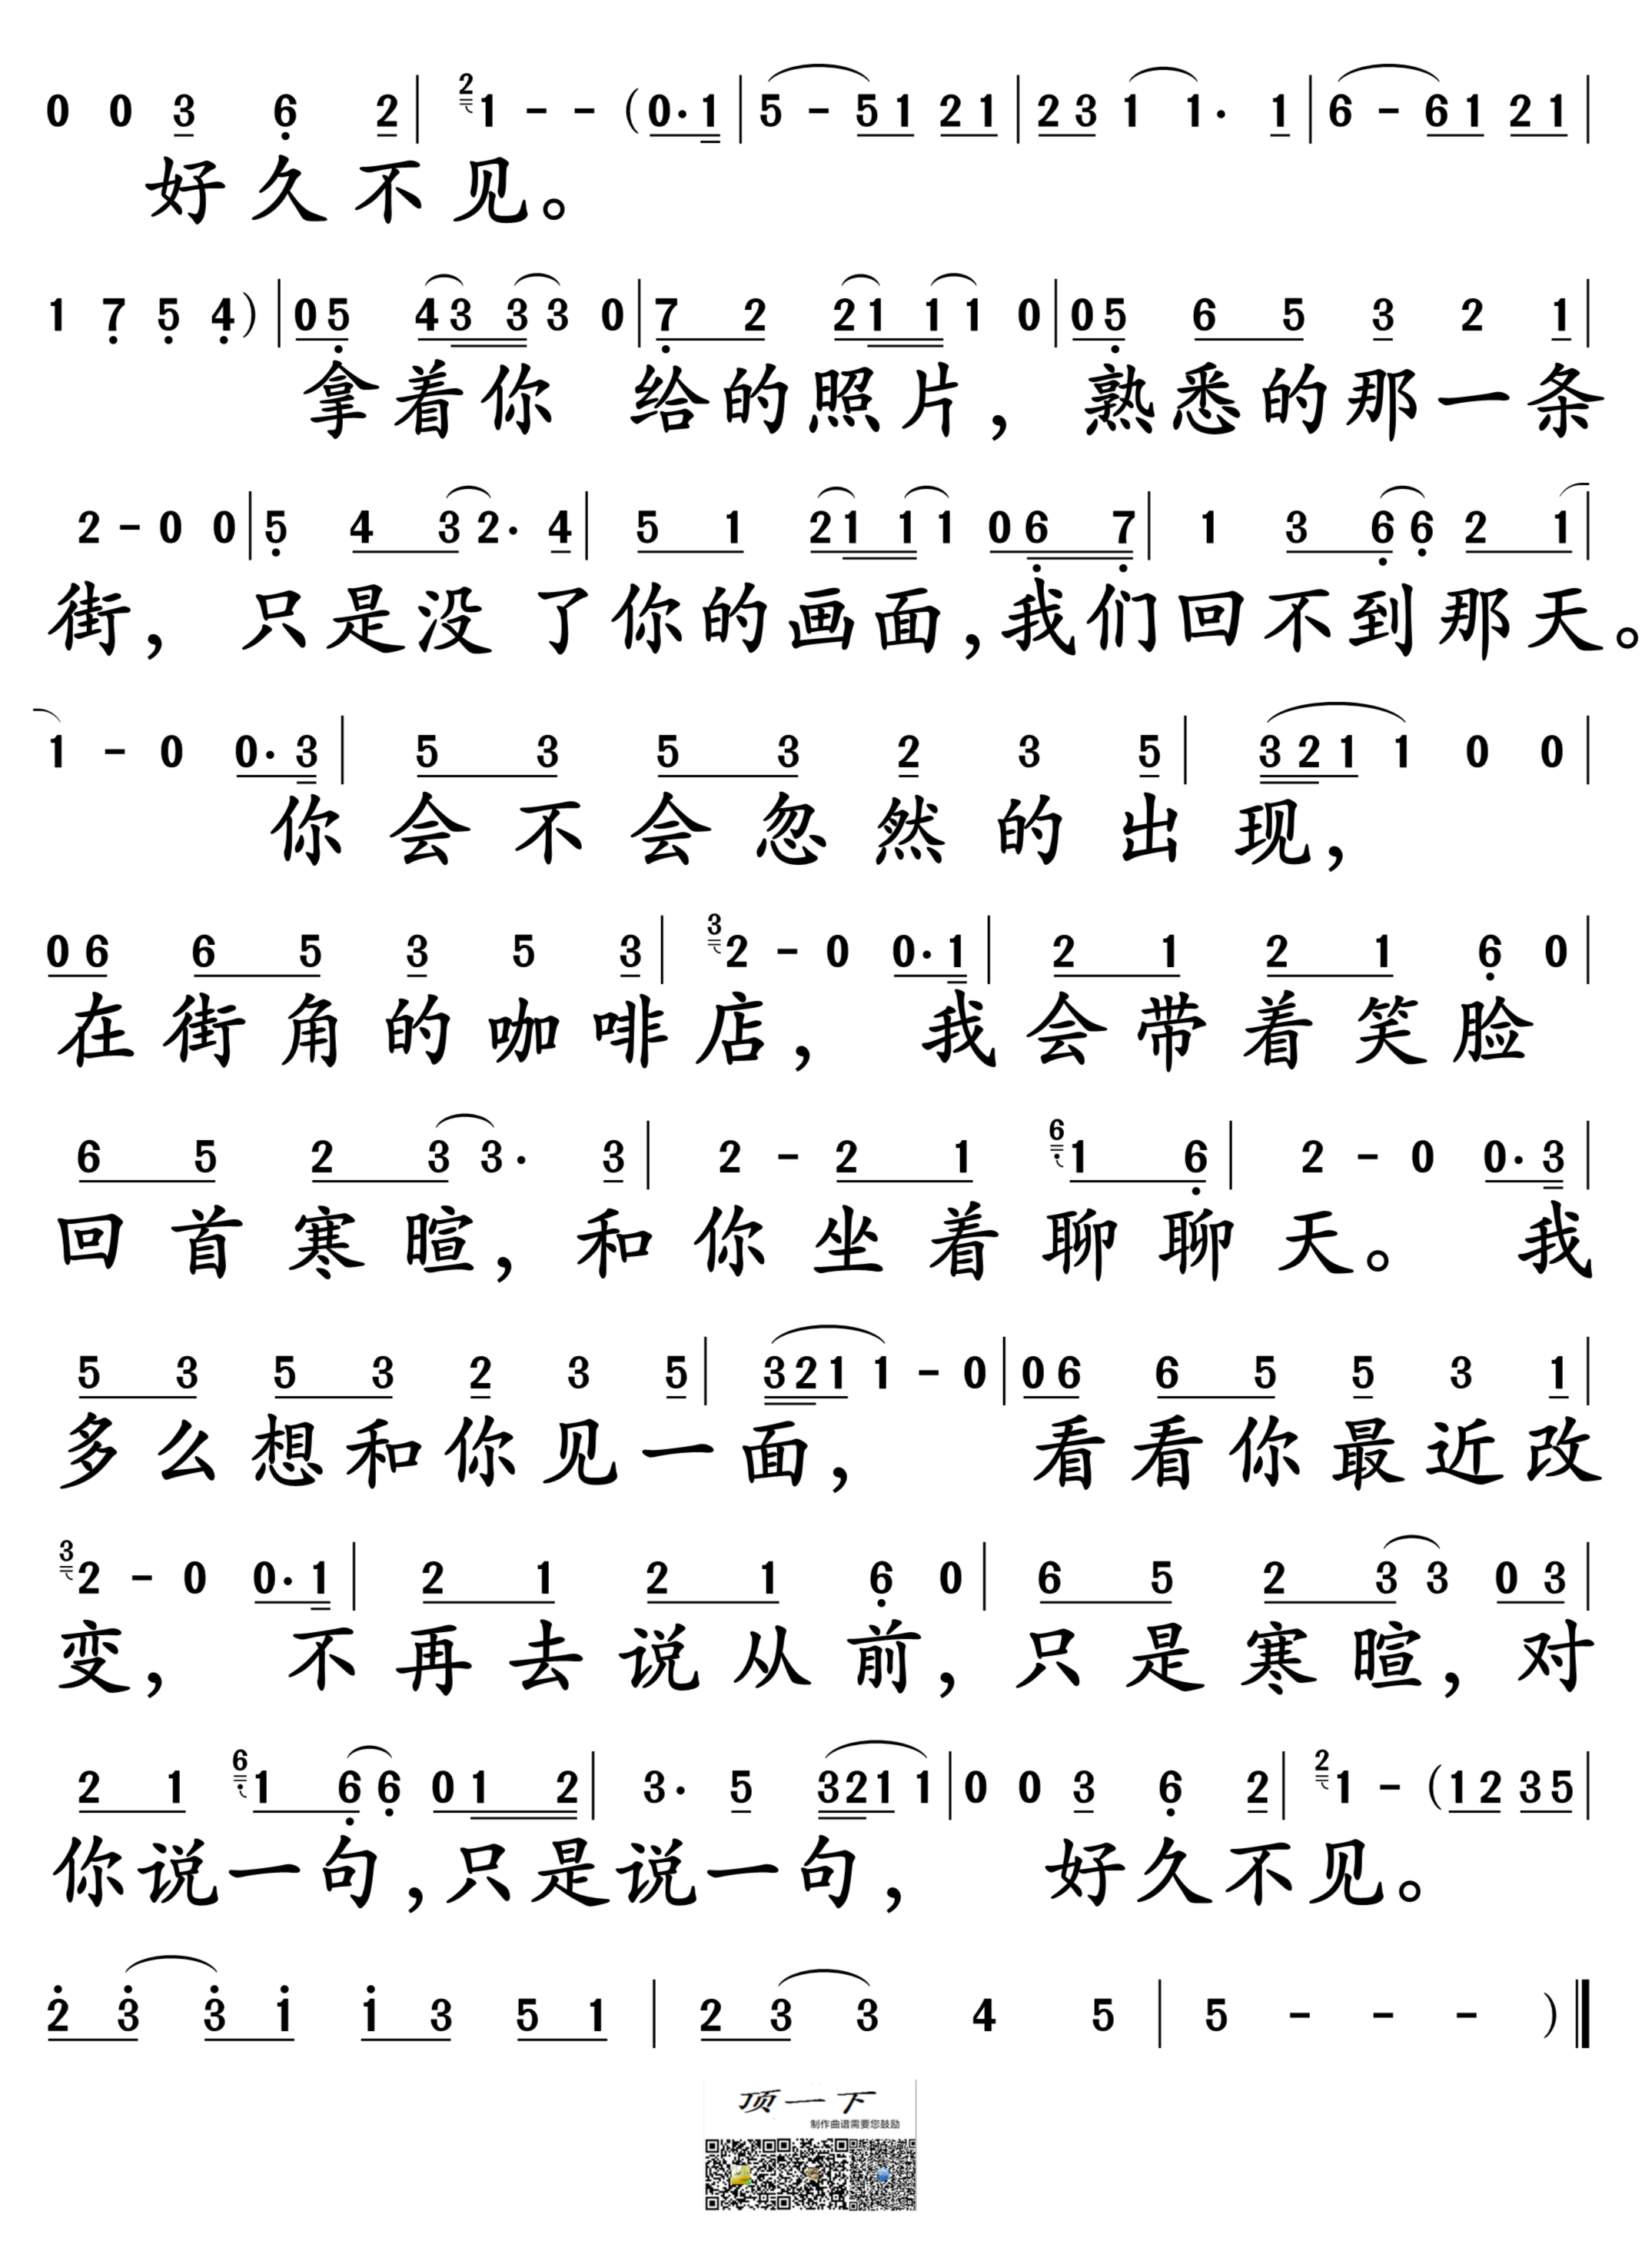 0 0 3 6 2 | 2 1 - - (0·1 | 5 - 5 1 2 1 | 2 3 1 1· 1 | 6 - 6 1 2 1 |
好久不见。
1 7 5 4) | 0 5 4 3 3 3 0 | 7 2 2 1 1 1 0 | 0 5 6 5 3 2 1 |
拿着你 给的照片, 熟悉的那一条
2 - 0 0 | 5 4 3 2· 4 | 5 1 2 1 1 1 0 6 7 | 1 3 6 6 2 1 |
街, 只是没了你的画面,我们回不到那天。
1 - 0 0·3 | 5 3 5 3 2 3 5 | 3 2 1 1 0 0 |
你会不会忽然的出现,
0 6 6 5 3 5 3 | 3 2 - 0 0·1 | 2 1 2 1 6 0 |
在街角的咖啡店, 我会带着笑脸
6 5 2 3 3· 3 | 2 - 2 1 6 1 6 | 2 - 0 0·3 |
回首寒暄,和你坐着聊聊天。 我
5 3 5 3 2 3 5 | 3 2 1 1 - 0 | 0 6 6 5 5 3 1 |
多么想和你见一面, 看看你最近改
3 2 - 0 0·1 | 2 1 2 1 6 0 | 6 5 2 3 3 0 3 |
变, 不再去说从前,只是寒暄,对
2 1 6 1 6 6 0 1 2 | 3· 5 3 2 1 1 | 0 0 3 6 2 | 2 1 - (1 2 3 5 |
你说一句,只是说一句, 好久不见。
2 3 3 1 1 3 5 1 | 2 3 3 4 5 | 5 - - - )
顶一下
制作曲谱需要您鼓励